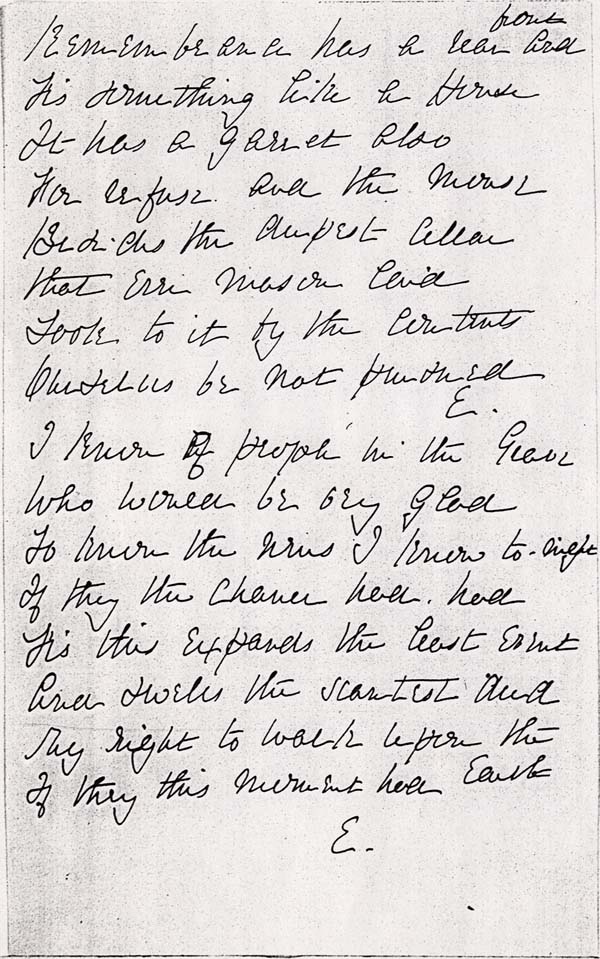 Remembrance has a rear and front
Tis something like a House
It has a garret also
For refuse and the Mouse
Besides the deepest cellar
that ever Mason laid
Look to it by the Contents
Ourselves be not pursued
E.
I know of people in the Grave
Who would be very glad
To know the news I know to-night
If they the chance had. had
Tis this expands the least Event
And swells the scantest deed
My right to walk upon the Earth
If they this moment had
E.